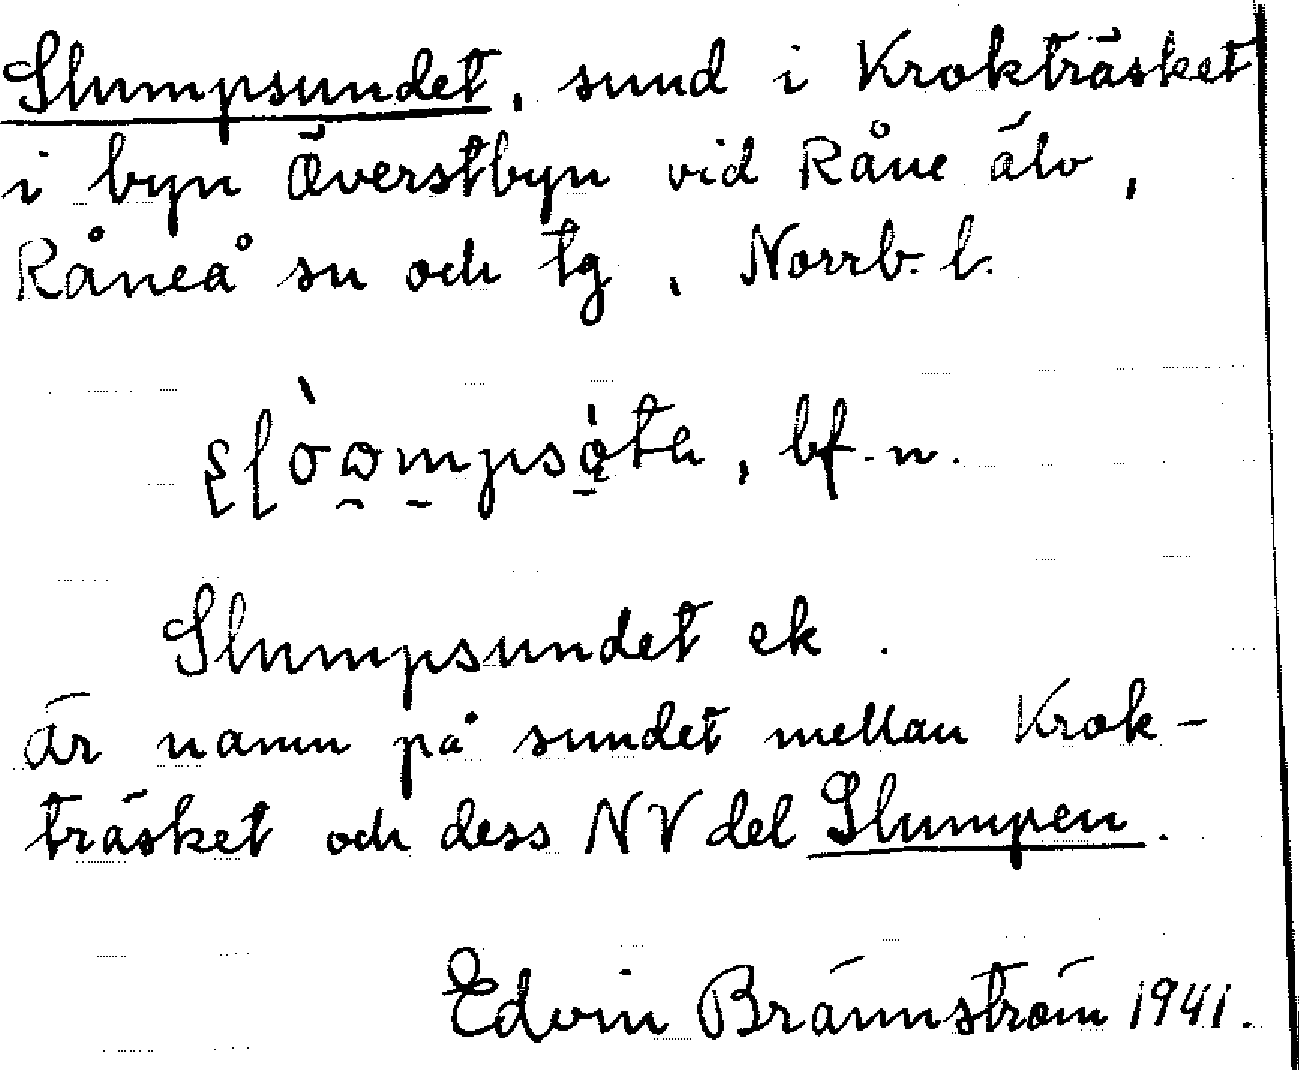 Slumpsundet, sund i Kroktråsket
i byn Överstbyn vid Råne älv,
Råneå sn och tg, Norrb. l.
bf. n.
Slumpsundet ek.
är namn på sundet mellan Krok-
träsket och dess NV del Slumpen.
Edvin Brännström 1941.